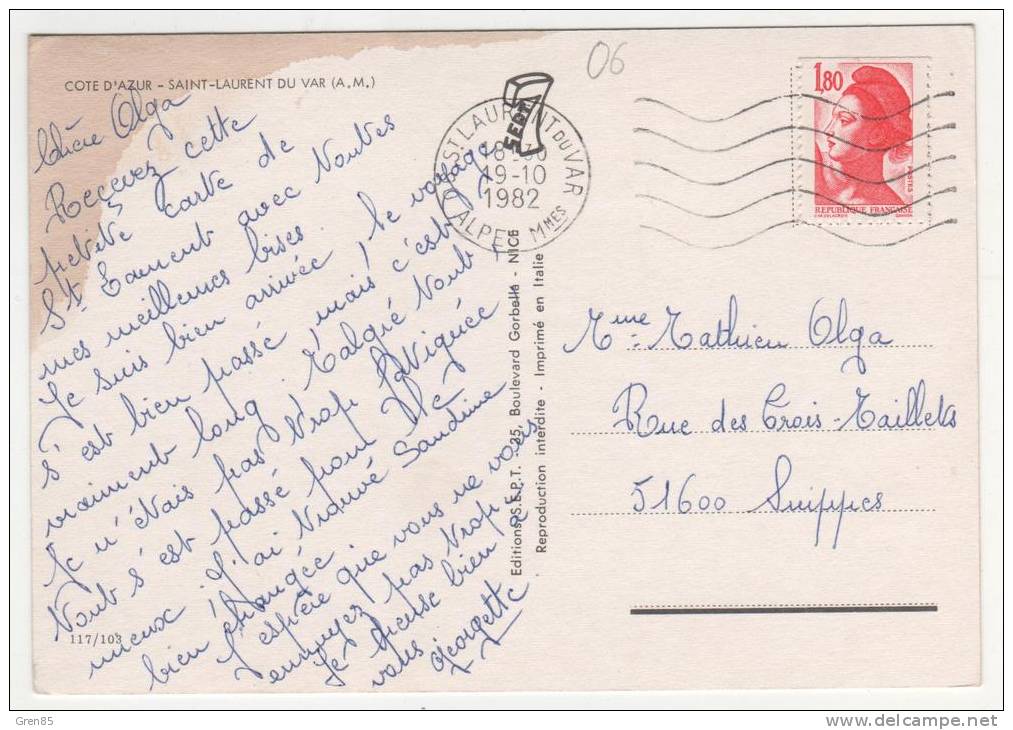 COTE D'AZUR - SAINT-LAURENT DU VAR (A.M.)
06
Chère Olga
Recevez cette
petite carte de
St Laurent avec toutes
mes meilleures bises.
Je suis bien arrivée, le voyage
s'est bien passé, mais c'est
vraiment long. Malgré tout
Je n'étais pas trop fatiguée
tout s'est passé pour le
mieux. J'ai trouvé Sandrine
bien changée.
J'espère que vous ne vous
ennuyez pas trop.
Je pense bien à
vous
Georgette
117/103
Editions S.E.P.T. - 35, Boulevard Gorbella - NICE
Reproduction interdite - Imprimé en Italie
SEPT
ST LAURENT DU VAR
19-10
1982
ALPES MMES
1,80
POSTES
REPUBLIQUE FRANÇAISE
Mme Mathieu Olga
Rue des Trois-Maillets
51600 Suippes
Gren85
www.delcampe.net